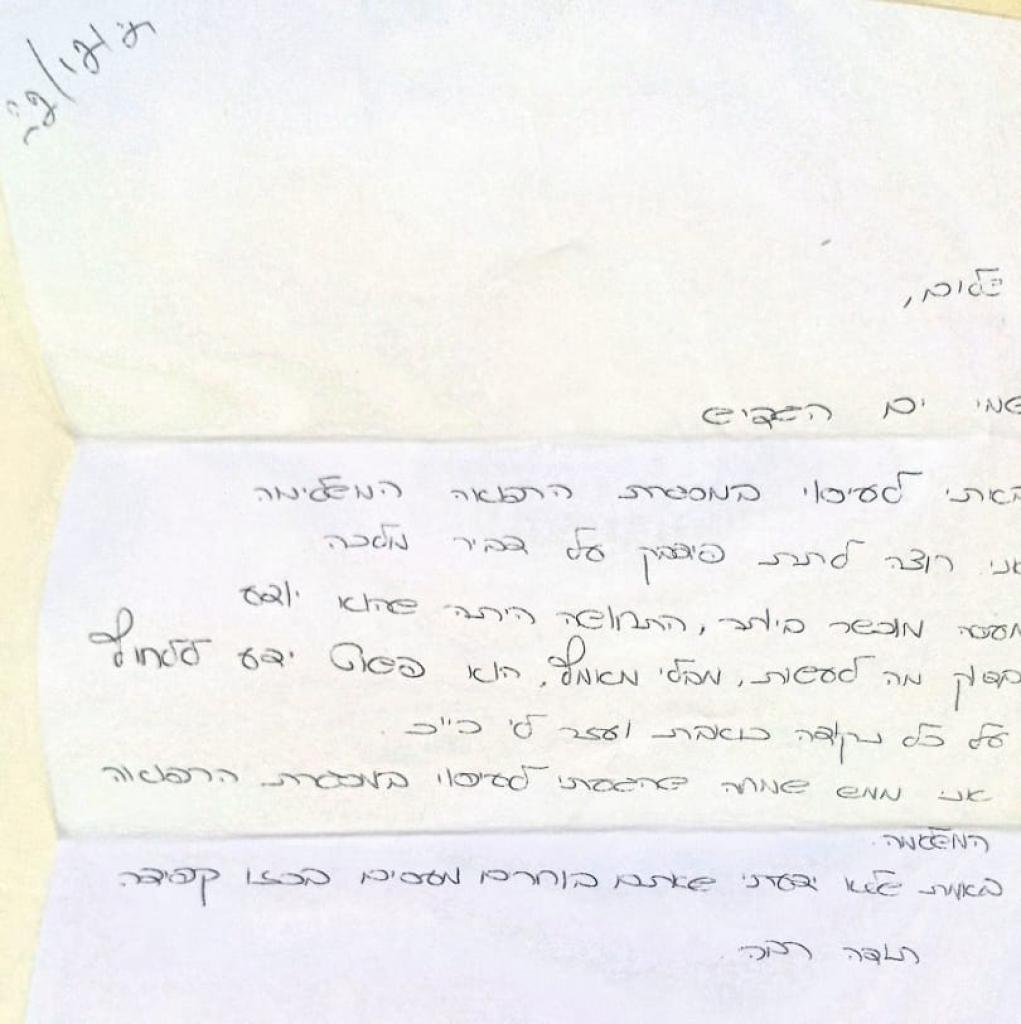 שלום,
שמי ים
באתי לעיסוי במסגרת הרפואה המשלימה
אני רוצה לתת פידבק על דביר מלכה
מעסה מוכשר ביותר, התחושה היתה שהוא יודע
בדיוק מה לעשות, מבלי מאמץ, הוא פשוט ידע ללחוץ
על כל נקודה כואבת ועזר לי כ"כ.
אני ממש שמחה שהגעתי לעיסוי במסגרת הרפואה
המשלימה.
באמת שלא ידעתי שאתם בוחרים מעסים בכזו קפידה
תודה רבה.